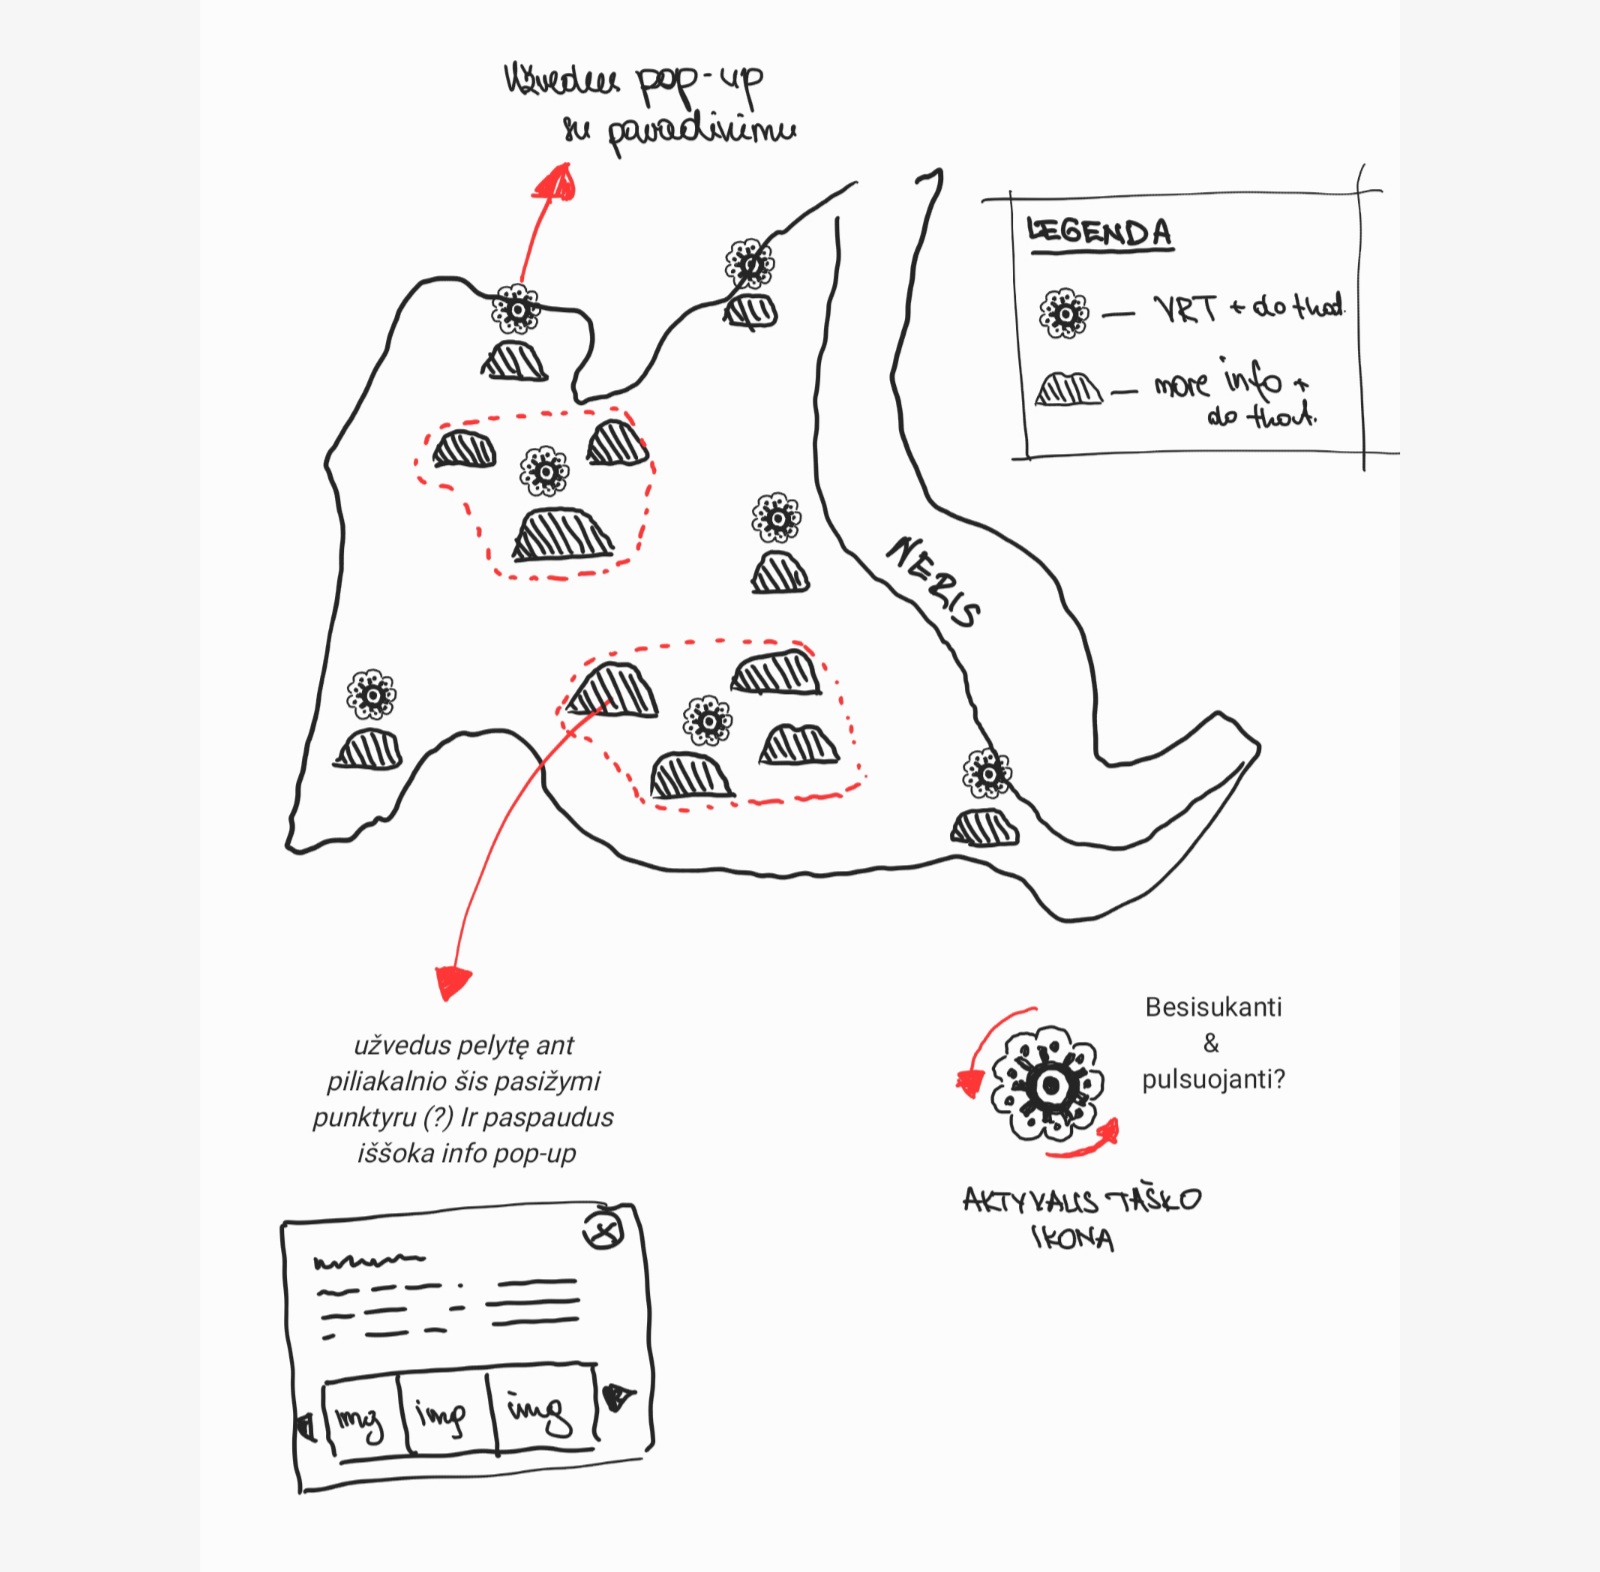 Užvedus pop-up
su pavadinimu
LEGENDA
VRT + do that.
more info +
do that.
NERIS
užvedus pelytę ant
piliakalnio šis pasižymi
punktyru (?) Ir paspaudus
iššoka info pop-up
Besisukanti
&
pulsuojanti?
AKTYVAUS TAŠKO
IKONA
X
img
img
img